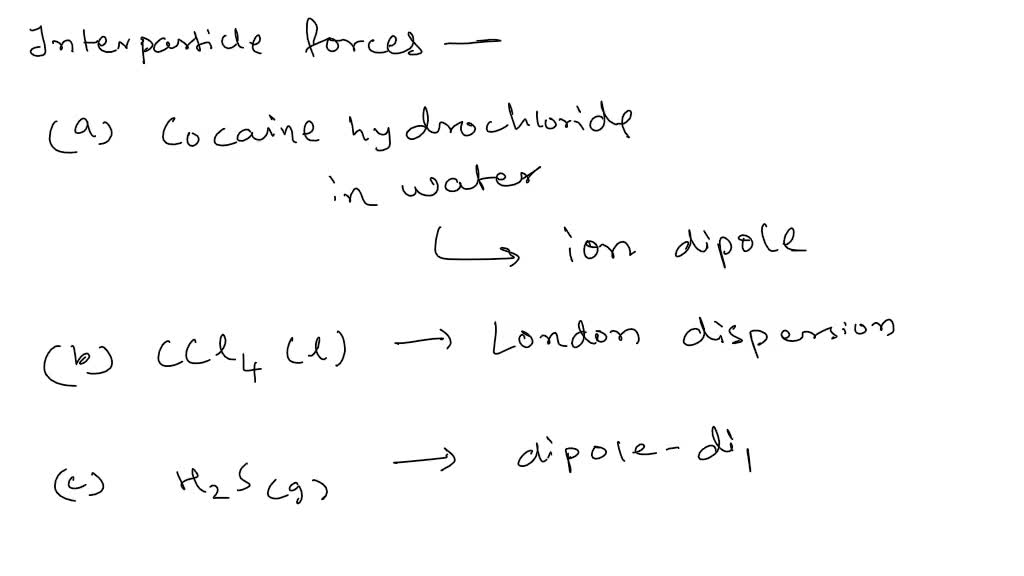 Interparticle forces —
(a) Cocaine hydrochloride
in water
↳ ion dipole
(b) CCl₄ (l) → London dispersion
(c) H₂S (g) → dipole-di